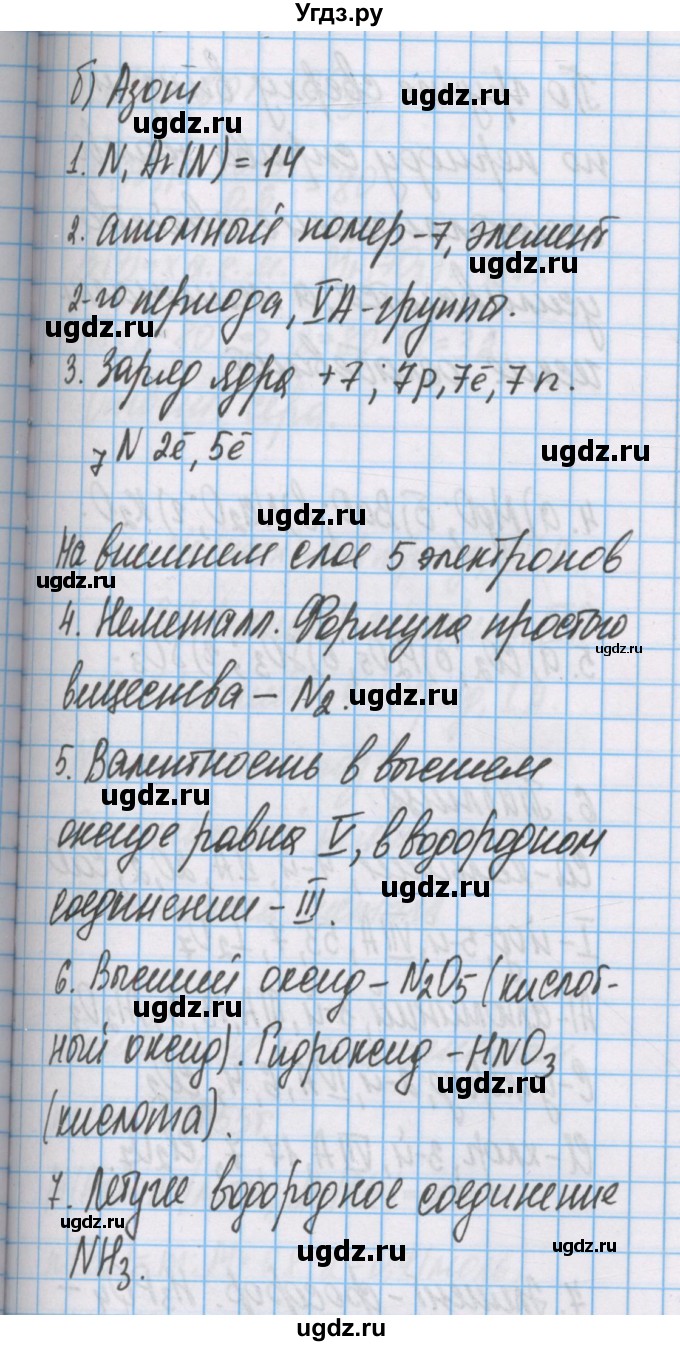 Угдз.ру
б) Азот
ugdz.ru
ugdz.ru
1. N, Ar(N) = 14
2. атомный номер - 7, элемент
ugdz.ru
2-го периода, VA-группы.
ugdz.ru
3. Заряд ядра +7; 7p, 7ē, 7n.
₇N 2ē, 5ē
ugdz.ru
ugdz.ru
На внешнем слое 5 электронов
ugdz.ru
4. Неметалл. Формула простого
ugdz.ru
вещества - N₂.
ugdz.ru
5. Валентность в высшем
ugdz.ru
оксиде равна V, в водородном
ugdz.ru
соединении - III.
6. Высший оксид - N₂O₅ (кислот-
ugdz.ru
ный оксид). Гидроксид - HNO₃
ugdz.ru
(кислота).
7. Летучее водородное соединение
ugdz.ru
NH₃.
ugdz.ru
ugdz.ru
ugdz.ru